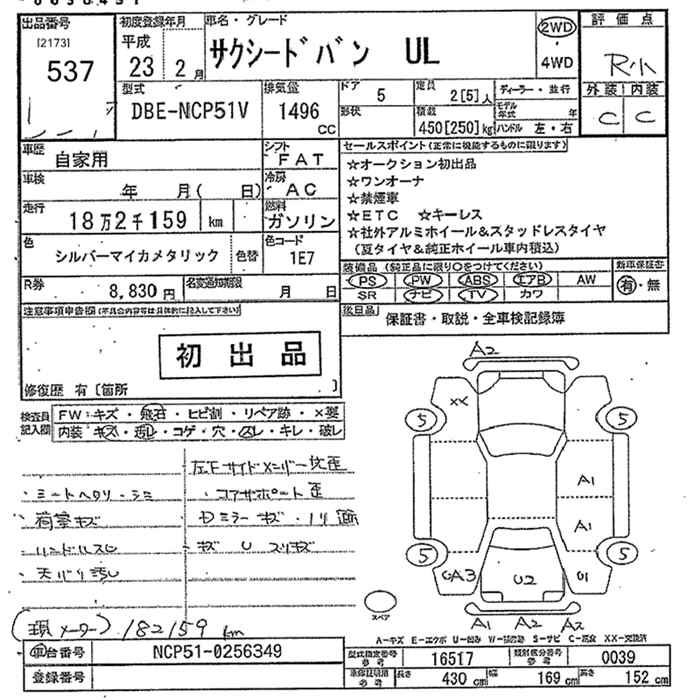 出品番号
[2173]
537
初度登録年月
平成
23 2月
車名・グレード
サクシードバン UL
2WD
・
4WD
評価点
R小
外装 内装
C C
型式
DBE-NCP51V
排気量
1496
CC
ドア
5
形状
定員
2[5]人
積載
450[250]kg
ディーラー・並行
モデル年式 年
ハンドル 左・右
車歴
自家用
シフト
FAT
車検
年 月( 日)
冷房
AC
走行
18万2千159 km
燃料
ガソリン
色
シルバーマイカメタリック
色替
色コード
1E7
R券
8,830円
名変通知期限
月 日
セールスポイント(正常に機能するものに限ります)
☆オークション初出品
☆ワンオーナ
☆禁煙車
☆ETC ☆キーレス
☆社外アルミホイール&スタッドレスタイヤ
(夏タイヤ&純正ホイール車内積込)
装備品(純正品に限り○をつけてください)
PS PW ABS エアB AW
SR ナビ TV カワ
新車保証書
有・無
後日品
保証書・取説・全車検記録簿
注意事項申告欄(不具合内容等は具体的に記入して下さい)
初出品
修復歴 有〔箇所 〕
検査員記入欄
FW:キズ・飛石・ヒビ割・リペア跡・×要
内装:キズ・汚レ・コゲ・穴・スレ・キレ・破レ
左Fサイドメンバー交歪
・シートヘタリ・シミ
・コアサポート歪
・荷室キズ
・ハンドルスレ
・天バリ汚レ
(現メーター) 182159 km
A2
XX
5
5
A1
A1
5
5
U2
U1
A1 A2 A2
スペア
A-キズ E-エクボ U-凹み W-補修跡 S-サビ C-腐食 XX-交換済
車台番号
NCP51-0256349
登録番号
型式指定番号
参考
16517
類別区分番号
参考
0039
車体寸法
参考
長さ
430 cm
幅
169 cm
高さ
152 cm